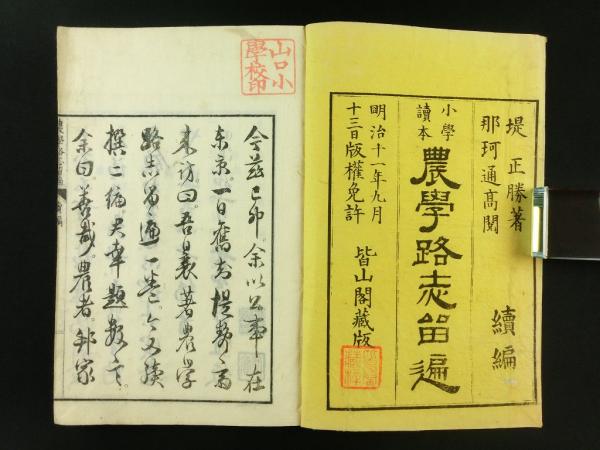 堤正勝著
那珂通高閲
續編
小學
讀本
農學路志留遍
明治十一年九月
十三日版權免許
皆山閣藏版
山口小
學校印
今茲己卯余以公事在
東京一日舊知堤静斎
来訪曰吾曩著農学
路志留遍一巻今又続
撰二編君幸題数言
余曰善哉農者邦家